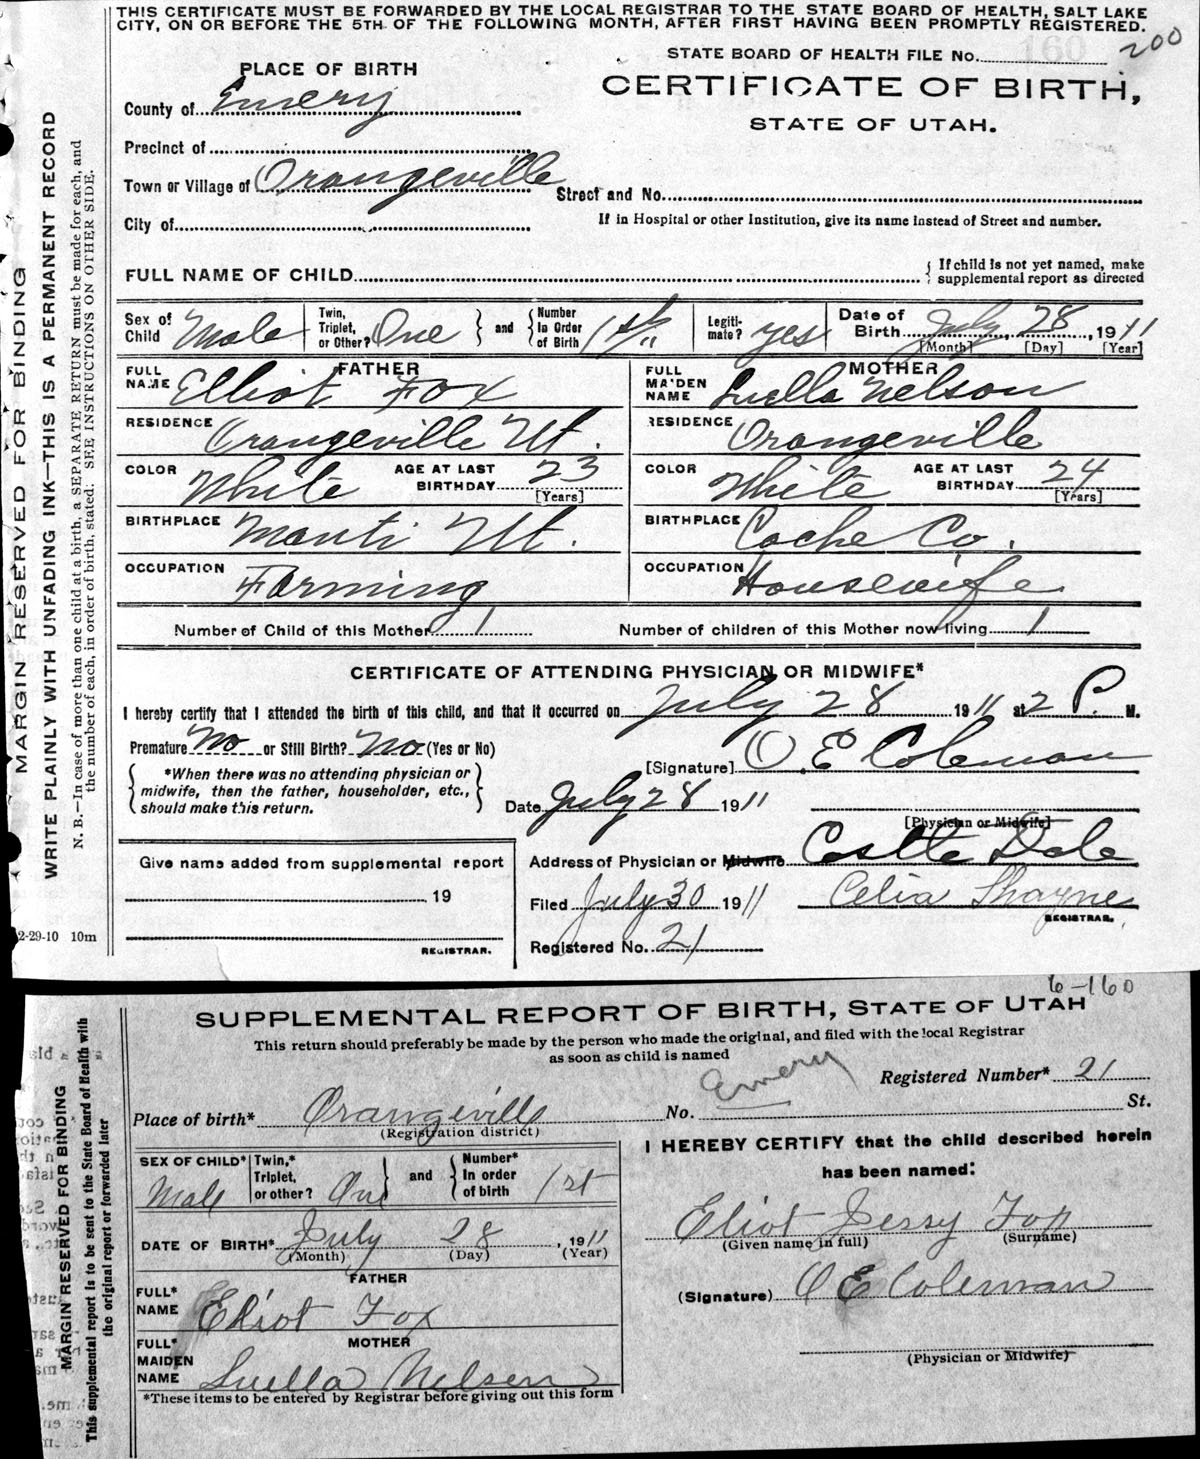 THIS CERTIFICATE MUST BE FORWARDED BY THE LOCAL REGISTRAR TO THE STATE BOARD OF HEALTH, SALT LAKE
CITY, ON OR BEFORE THE 5TH OF THE FOLLOWING MONTH, AFTER FIRST HAVING BEEN PROMPTLY REGISTERED.
200
160
STATE BOARD OF HEALTH FILE No.
PLACE OF BIRTH
CERTIFICATE OF BIRTH,
STATE OF UTAH.
County of Emery
Precinct of
Town or Village of Orangeville
Street and No.
City of
If in Hospital or other Institution, give its name instead of Street and number.
FULL NAME OF CHILD
{ If child is not yet named, make
supplemental report as directed
Sex of Child Male
Twin, Triplet, or Other? One } and { Number In Order of Birth 1st
Legiti-mate? yes
Date of Birth July 28, 1911
[Month] [Day] [Year]
FATHER
FULL NAME Elliot Fox
RESIDENCE Orangeville Ut.
COLOR White AGE AT LAST BIRTHDAY 23 [Years]
BIRTHPLACE Manti Ut.
OCCUPATION Farming
MOTHER
FULL MAIDEN NAME Luella Nelson
RESIDENCE Orangeville
COLOR White AGE AT LAST BIRTHDAY 24 [Years]
BIRTHPLACE Cache Co.
OCCUPATION Housewife
Number of Child of this Mother 1 Number of children of this Mother now living 1
CERTIFICATE OF ATTENDING PHYSICIAN OR MIDWIFE*
I hereby certify that I attended the birth of this child, and that it occurred on July 28 1911 at 2 P. M.
Premature No or Still Birth? No (Yes or No)
{ *When there was no attending physician or
midwife, then the father, householder, etc.,
should make this return. }
[Signature] O. E Coleman
Date July 28 1911
[Physician or Midwife]
Give name added from supplemental report
, 19
REGISTRAR.
Address of Physician or Midwife Castle Dale
Filed July 30 1911 Celia Shayne
REGISTRAR.
Registered No. 21
2-29-10 10m
MARGIN RESERVED FOR BINDING
WRITE PLAINLY WITH UNFADING INK—THIS IS A PERMANENT RECORD
N. B.—In case of more than one child at a birth, a SEPARATE RETURN must be made for each, and
the number of each, in order of birth, stated: SEE INSTRUCTIONS ON OTHER SIDE.
6-160
SUPPLEMENTAL REPORT OF BIRTH, STATE OF UTAH
This return should preferably be made by the person who made the original, and filed with the local Registrar
as soon as child is named
Emery
Registered Number* 21
Place of birth* Orangeville No. St.
(Registration district)
SEX OF CHILD* Male
Twin,* Triplet, or other? One } and { Number* In order of birth 1st
DATE OF BIRTH* July 28, 1911
(Month) (Day) (Year)
FATHER
FULL* NAME Eliot Fox
MOTHER
FULL* MAIDEN NAME Luella Nelsen
*These items to be entered by Registrar before giving out this form
I HEREBY CERTIFY that the child described herein
has been named:
Eliot Jessy Fox
(Given name in full) (Surname)
(Signature) O E Coleman
(Physician or Midwife)
MARGIN RESERVED FOR BINDING
This supplemental report is to be sent to the State Board of Health with
the original report or forwarded later